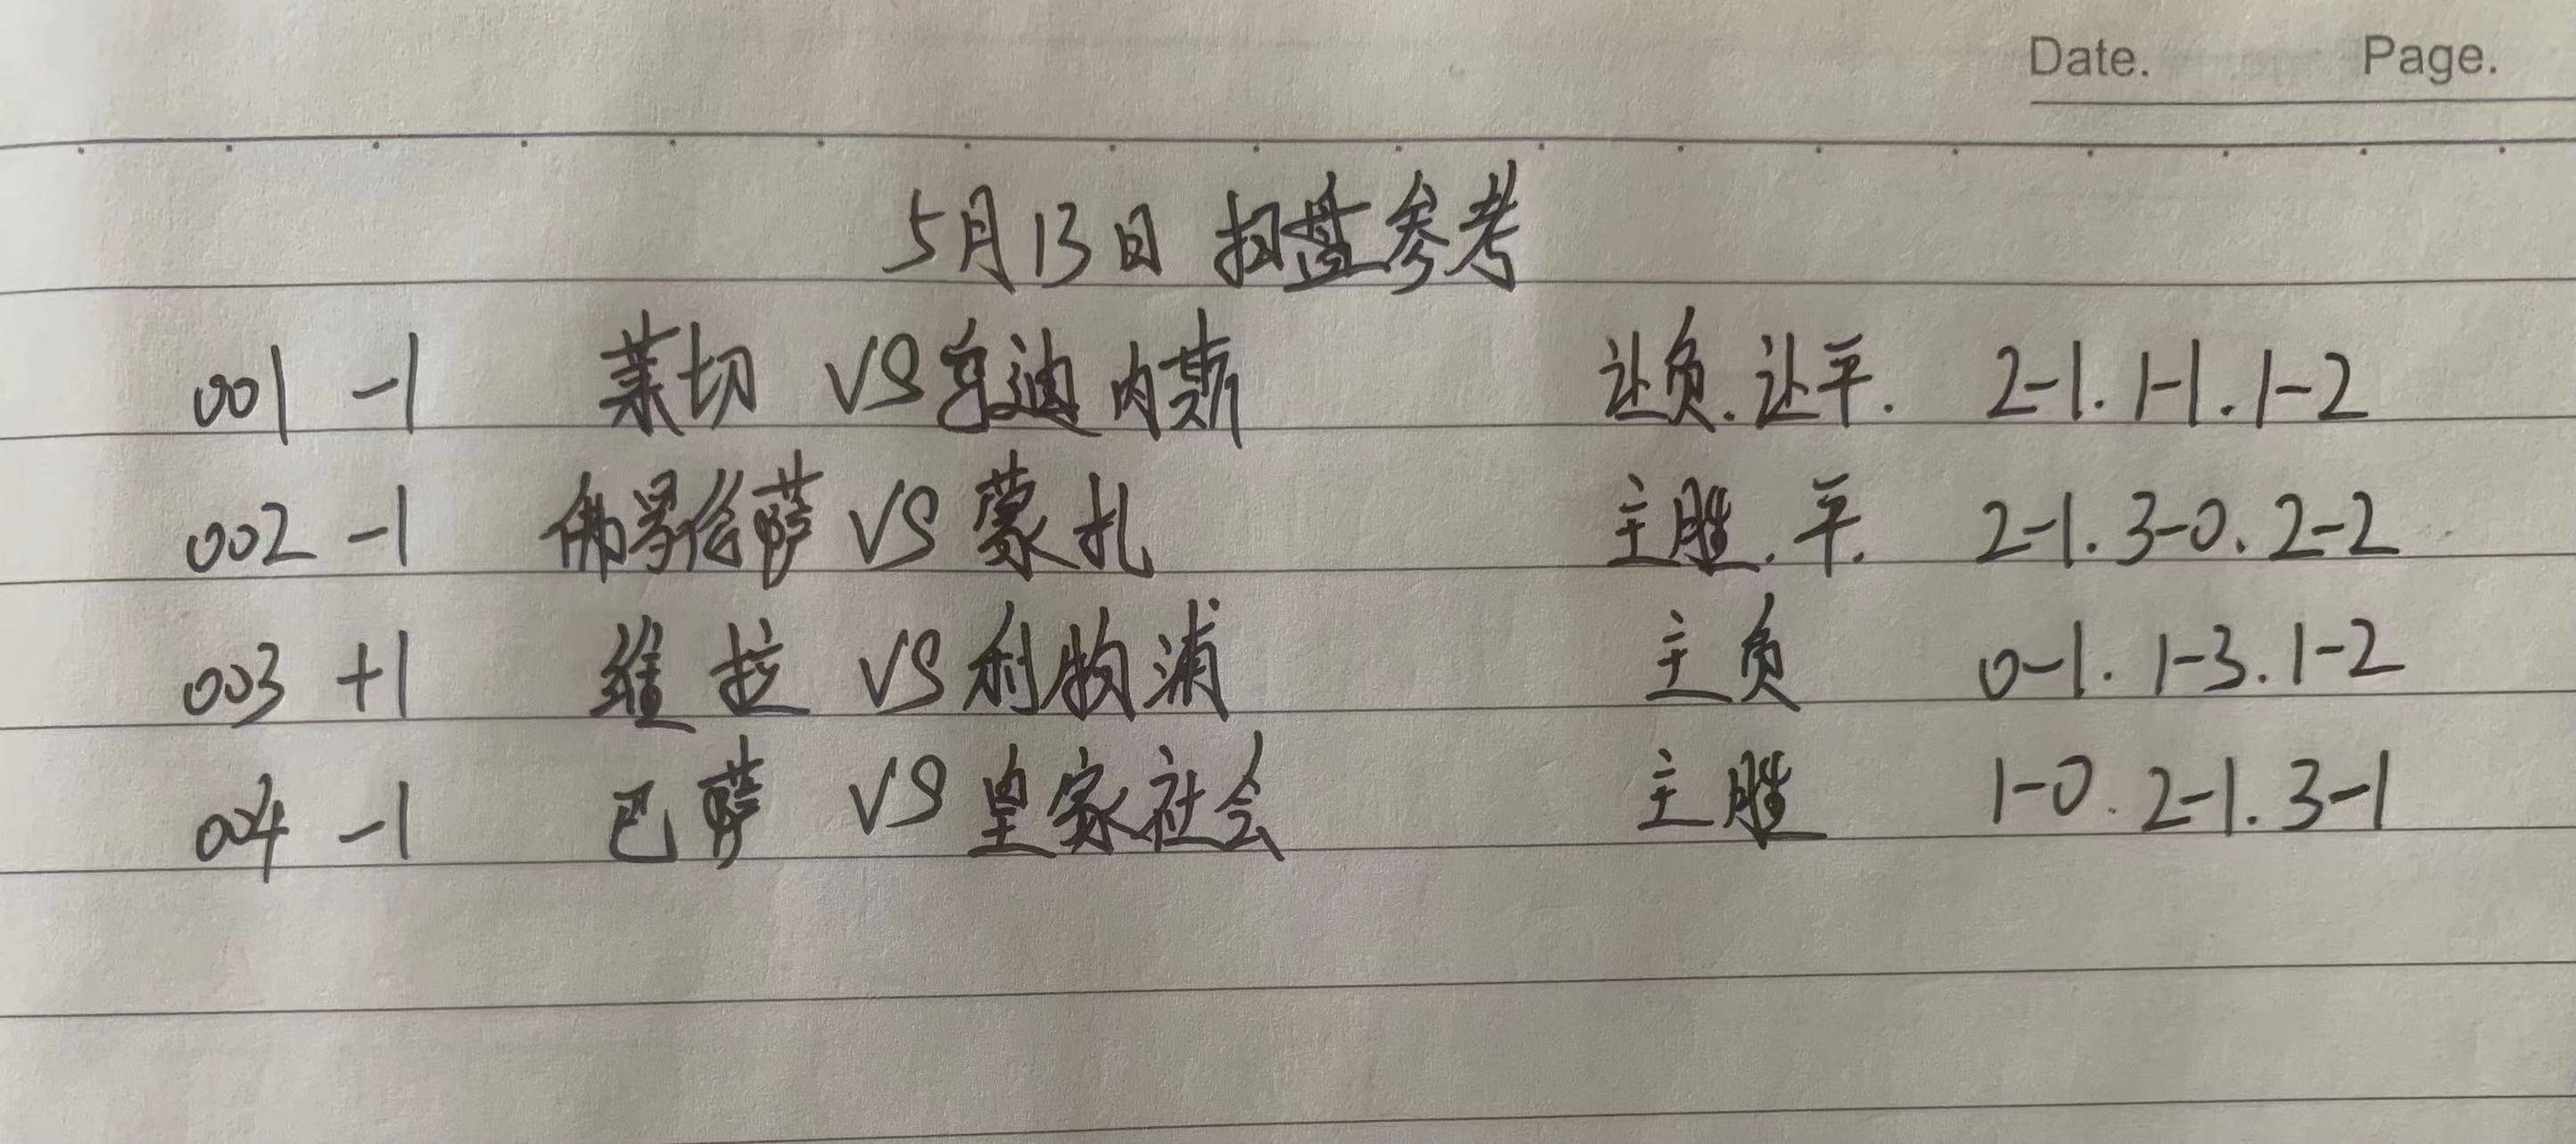 Date. Page.
5月13日 扫盘参考
001 -1 莱切 VS 乌迪内斯 让负.让平. 2-1. 1-1. 1-2
002 -1 佛罗伦萨 VS 蒙扎 主胜.平. 2-1. 3-0. 2-2
003 +1 维拉 VS 利物浦 主负 0-1. 1-3. 1-2
004 -1 巴萨 VS 皇家社会 主胜 1-0. 2-1. 3-1